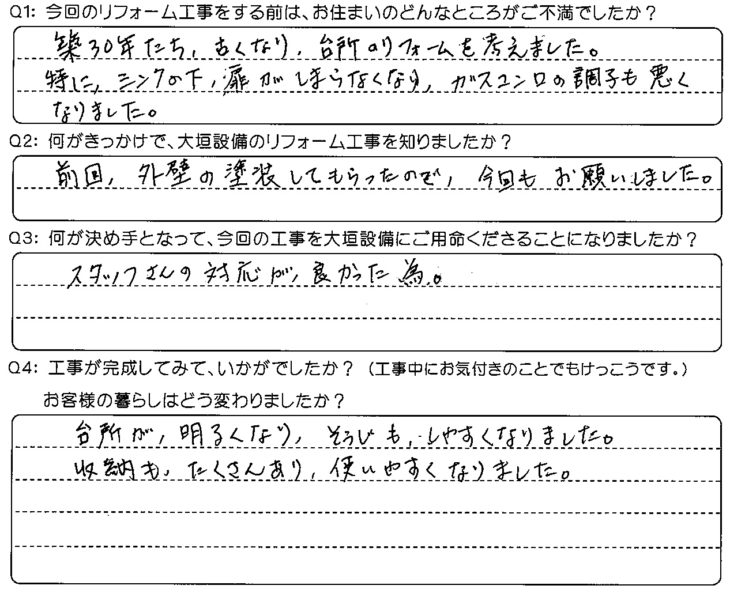 Q1: 今回のリフォーム工事をする前は、お住まいのどんなところがご不満でしたか？
築30年たち、古くなり、台所のリフォームを考えました。
特に、シンクの下、扉がしまらなくなり、ガスコンロの調子も悪く
なりました。
Q2: 何がきっかけで、大垣設備のリフォーム工事を知りましたか？
前回、外壁の塗装してもらったので、今回もお願いしました。
Q3: 何が決め手となって、今回の工事を大垣設備にご用命くださることになりましたか？
スタッフさんの対応が、良かった為。
Q4: 工事が完成してみて、いかがでしたか？（工事中にお気付きのことでもけっこうです。）
お客様の暮らしはどう変わりましたか？
台所が、明るくなり、そうじも、しやすくなりました。
収納も、たくさんあり、使いやすくなりました。